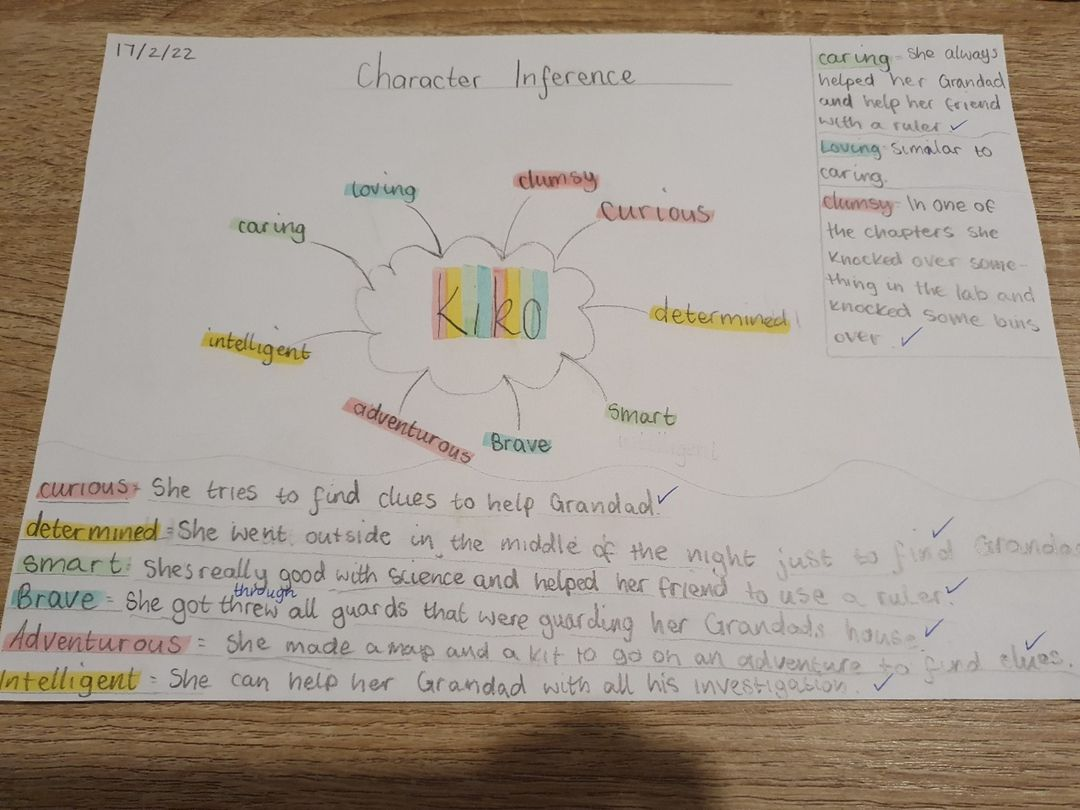 17/2/22
Character Inference
loving
clumsy
curious
caring
KIRO
determined
intelligent
adventurous
Brave
smart
intelligent
caring - she always
helped her Grandad
and help her friend
with a ruler ✓
Loving - similar to
caring.
clumsy - In one of
the chapters she
knocked over some-
thing in the lab and
knocked some bins
over. ✓
curious - She tries to find clues to help Grandad. ✓
determined = She went outside in the middle of the night just to find Grandad ✓
smart = Shes really good with science and helped her friend to use a ruler. ✓
through
Brave = She got threw all guards that were guarding her Grandads house. ✓
Adventurous = She made a map and a kit to go on an adventure to find clues. ✓
Intelligent = She can help her Grandad with all his investigation. ✓